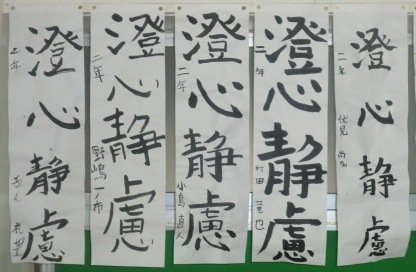 澄心静慮
二年
澄心静慮
二年 伏見
澄心静慮
二年 村田 竜也
澄心静慮
二年 小島 直人
澄心静慮
二年 野嶋